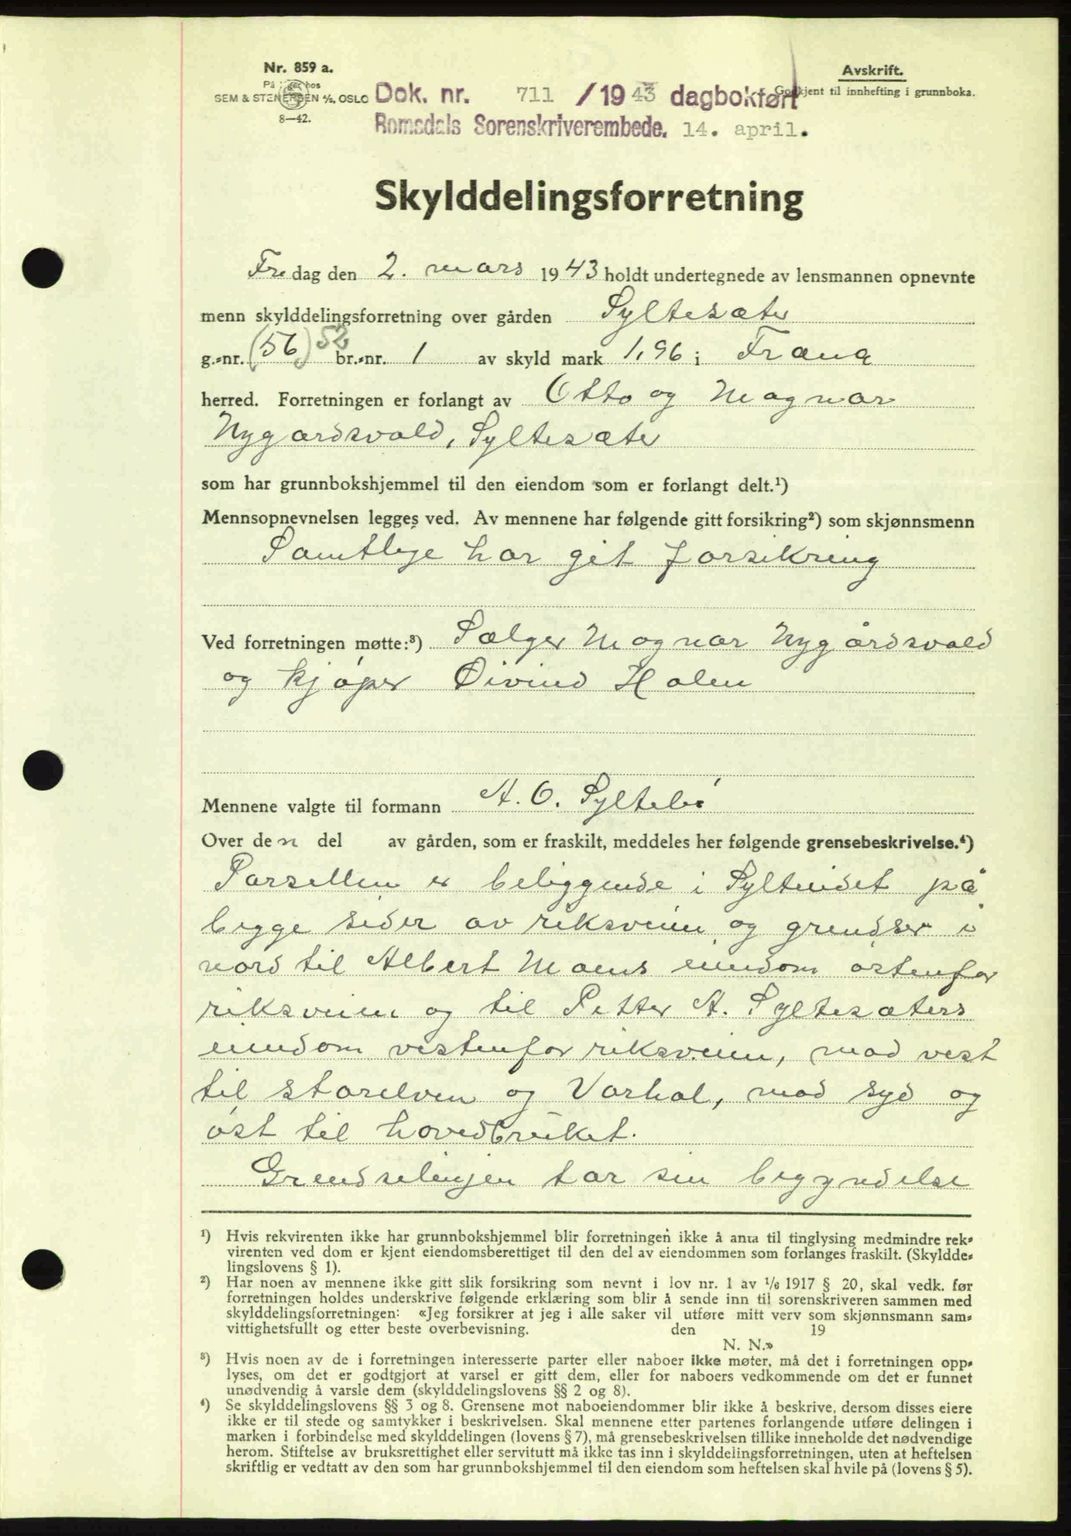 Nr. 859 a.
SEM & STENERSEN A/S, OSLO
8—42.
Avskrift.
Godkjent til innhefting i grunnboka.
Dok. nr. 711 /1943 dagbokført
Romsdals Sorenskriverembede. 14. april.
Skylddelingsforretning
Fredag den 2. mars 1943 holdt undertegnede av lensmannen opnevnte
menn skylddelingsforretning over gården Syltesæter
g.-nr. (56) 52 br.-nr. 1 av skyld mark 1,96 i Fræna
herred. Forretningen er forlangt av Otto og Magnar
Nygardsvold, Syltesæter
som har grunnbokshjemmel til den eiendom som er forlangt delt.¹)
Mennsopnevnelsen legges ved. Av mennene har følgende gitt forsikring²) som skjønnsmenn
Samtlige har git forsikring
Ved forretningen møtte:³) Sælger Magnar Nygårdsvold
og kjøper Øivind Holen
Mennene valgte til formann A. O. Syltebø
Over den del av gården, som er fraskilt, meddeles her følgende grensebeskrivelse.⁴)
Parsellen er beliggende i Sylteidet på
begge sider av riksveien og grendser i
nord til Albert Moens eiendom østenfor
riksveien og til Petter A. Syltesæters
eiendom vestenfor riksveien, mod vest
til storelven og Varhol, mod syd og
øst til hovedbruket.
Grendselinjen tar sin begyndelse
¹) Hvis rekvirenten ikke har grunnbokshjemmel blir forretningen ikke å anta til tinglysing medmindre rek-
virenten ved dom er kjent eiendomsberettiget til den del av eiendommen som forlanges fraskilt. (Skyldde-
lingslovens § 1).
²) Har noen av mennene ikke gitt slik forsikring som nevnt i lov nr. 1 av 1/6 1917 § 20, skal vedk. før
forretningen holdes underskrive følgende erklæring som blir å sende inn til sorenskriveren sammen med
skylddelingsforretningen: «Jeg forsikrer at jeg i alle saker vil utføre mitt verv som skjønnsmann sam-
vittighetsfullt og etter beste overbevisning. den 19
N. N.»
³) Hvis noen av de i forretningen interesserte parter eller naboer ikke møter, må det i forretningen opp-
lyses, om det er godtgjort at varsel er gitt dem, eller for naboers vedkommende om det er funnet
unødvendig å varsle dem (skylddelingslovens §§ 2 og 8).
⁴) Se skylddelingslovens §§ 3 og 8. Grensene mot naboeiendommer blir ikke å beskrive, dersom disses eiere
ikke er til stede og samtykker i beskrivelsen. Skal mennene etter partenes forlangende utføre delingen i
marken i forbindelse med skylddelingen (lovens § 7), må grensebeskrivelsen tillike inneholde det nødvendige
herom. Stiftelse av bruksrettighet eller servitutt må ikke tas inn i skylddelingsforretningen, uten at heftelsen
skriftlig er vedtatt av den som har grunnbokshjemmel til den eiendom som heftelsen skal hvile på (lovens § 5).